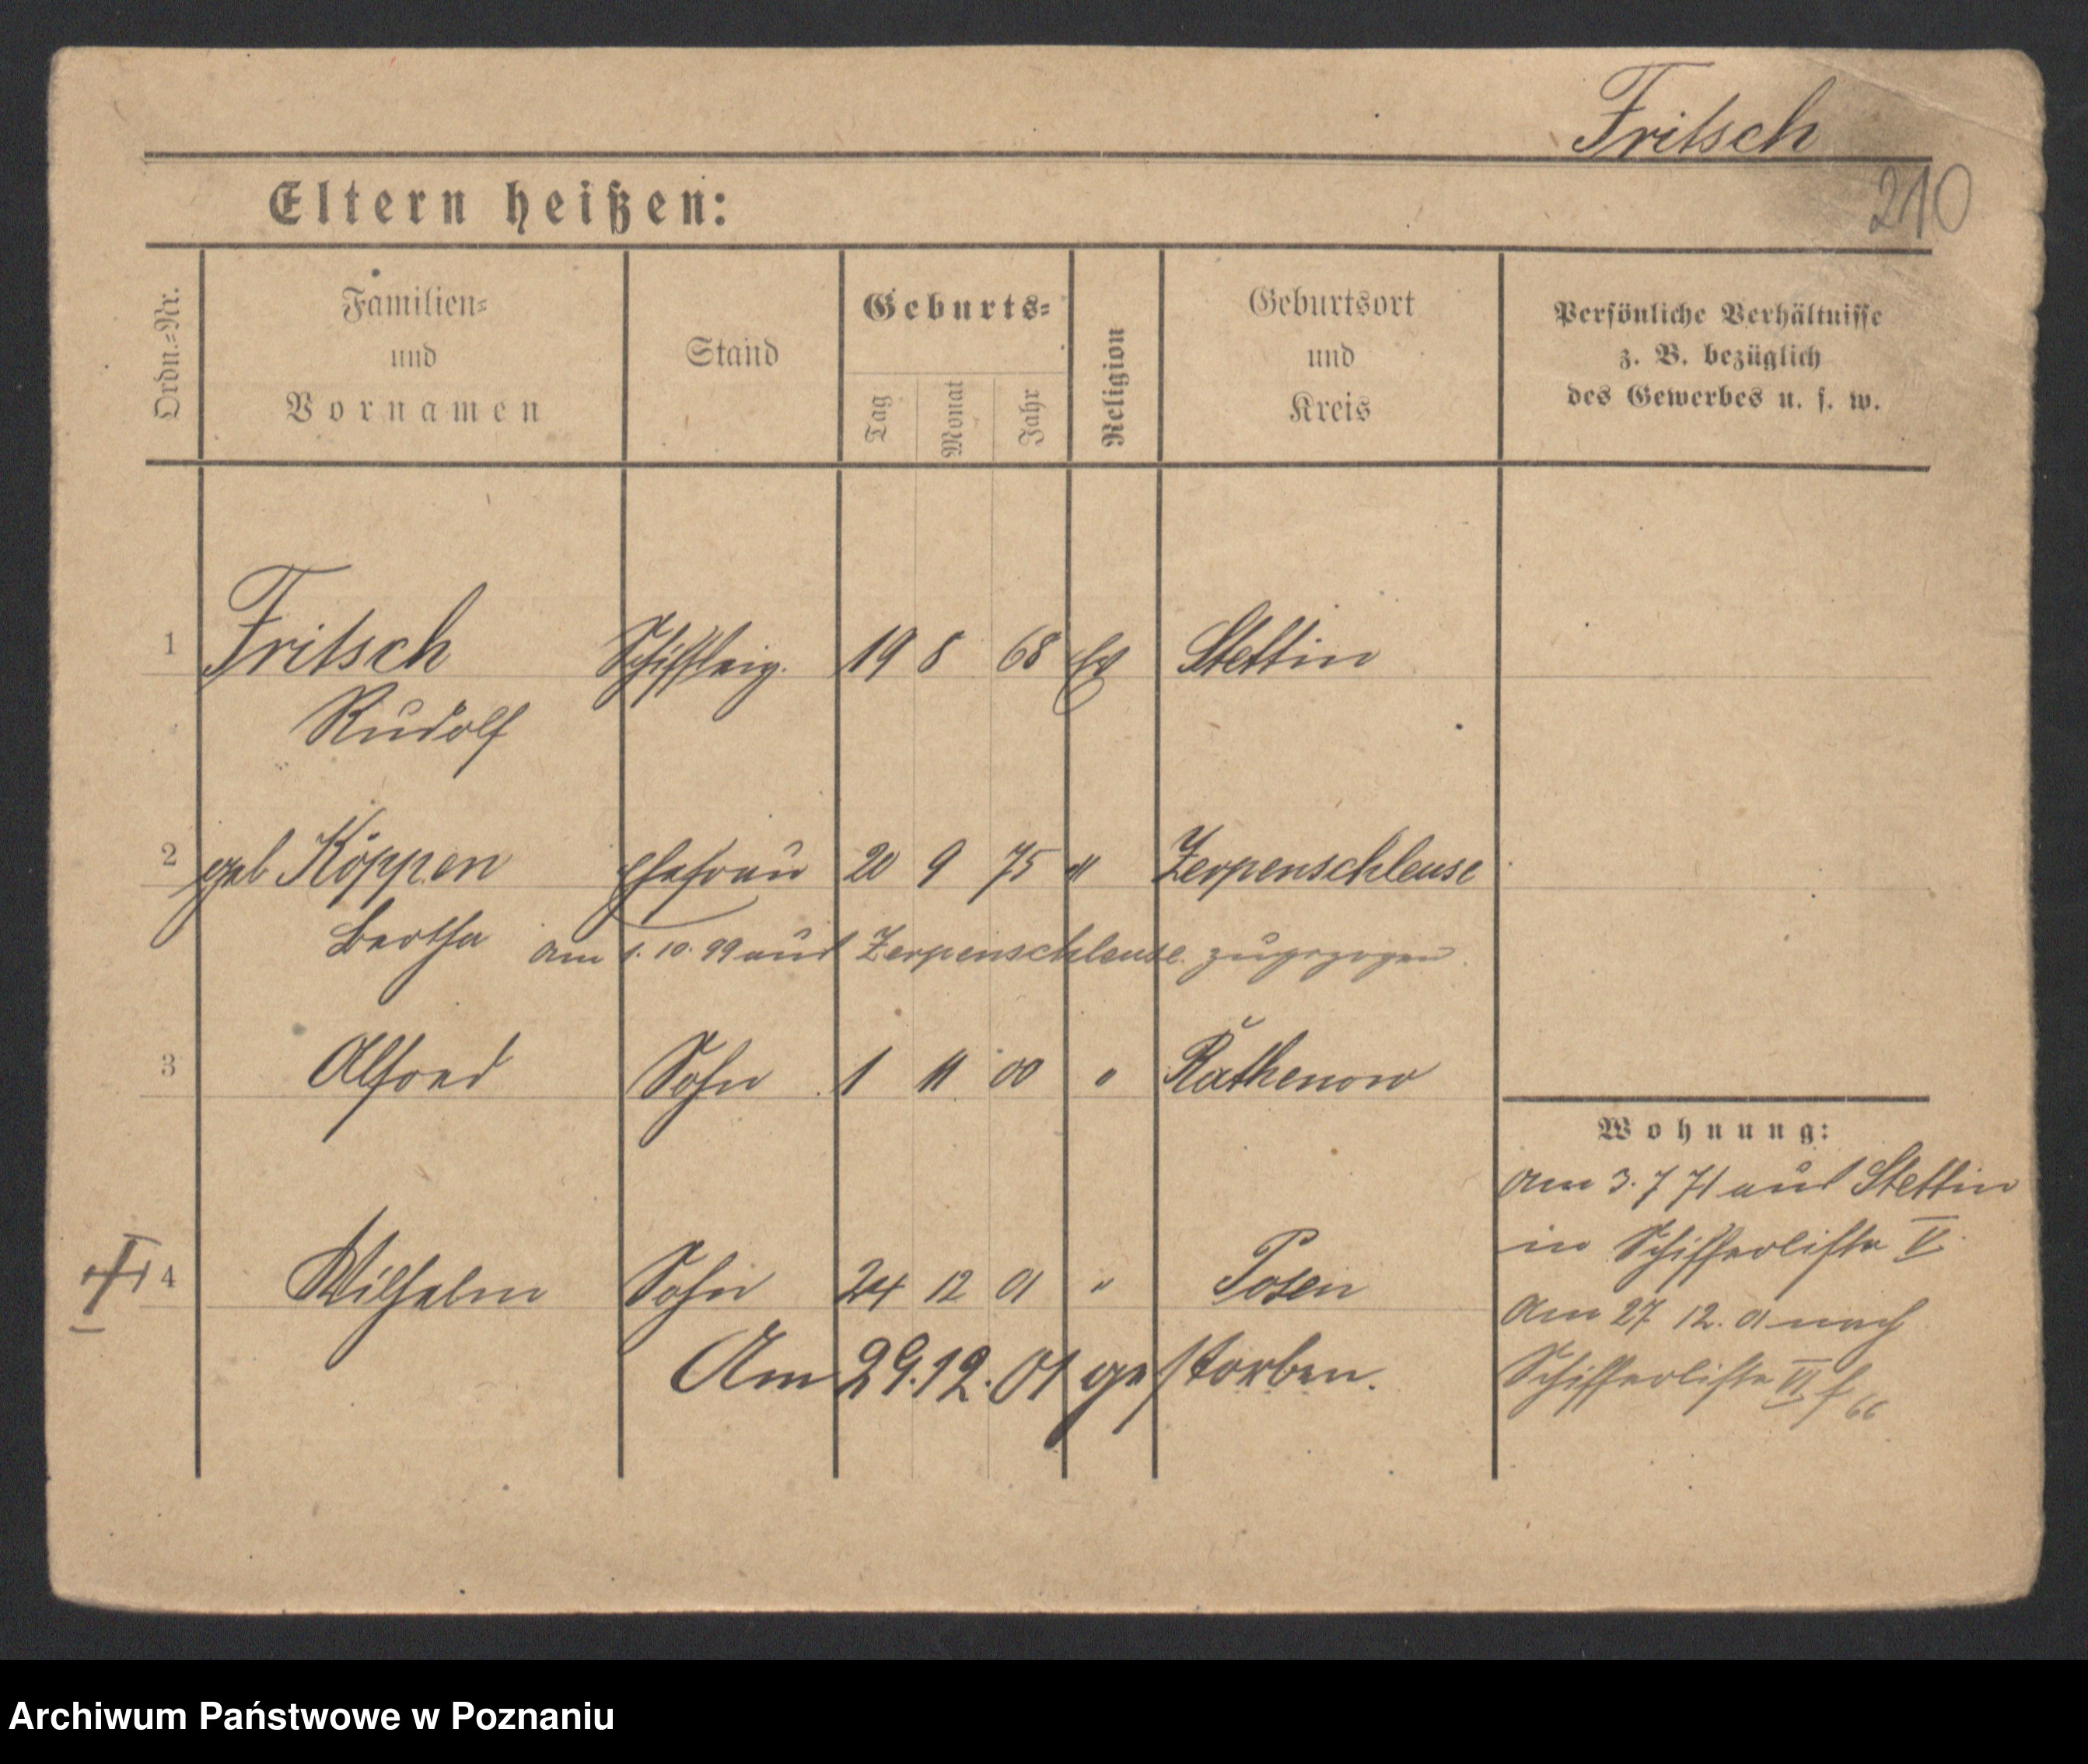 Fritsch
210
Eltern heißen:
Ordn.-Nr.
Familien-
und
Vornamen
Stand
Geburts-
Tag
Monat
Jahr
Religion
Geburtsort
und
Kreis
Persönliche Verhältnisse
z. B. bezüglich
des Gewerbes u. s. w.
1 Fritsch Schiffseig. 19 8 68 Ev Stettin
Rudolf
2 geb Köppen Ehefrau 20 9 75 " Zerpenschleuse
Bertha am 1. 10. 99 aus Zerpenschleuse zugezogen.
3 Alfred Sohn 1 11 00 " Rathenow
4 Wilhelm Sohn 24 12 01 " Posen
Am 29.12.01 gestorben.
Wohnung:
am 3. 7 71 aus Stettin
in Schifferliste V.
am 27 12. 01 nach
Schifferliste VI f 66
Archiwum Państwowe w Poznaniu